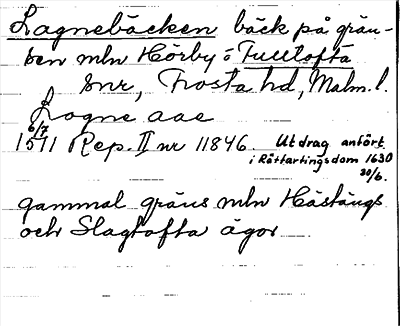 Lagnebäcken bäck på grän-
sen mln Hörby o Fulltofta
snr, Frosta hd, Malm. l.
Logne aae
6/7
1511 Rep. II nr 11846. Utdrag anfört
i Råttartingsdom 1630
30/6.
gammal gräns mln Hästängs
och Slagtofta ägor